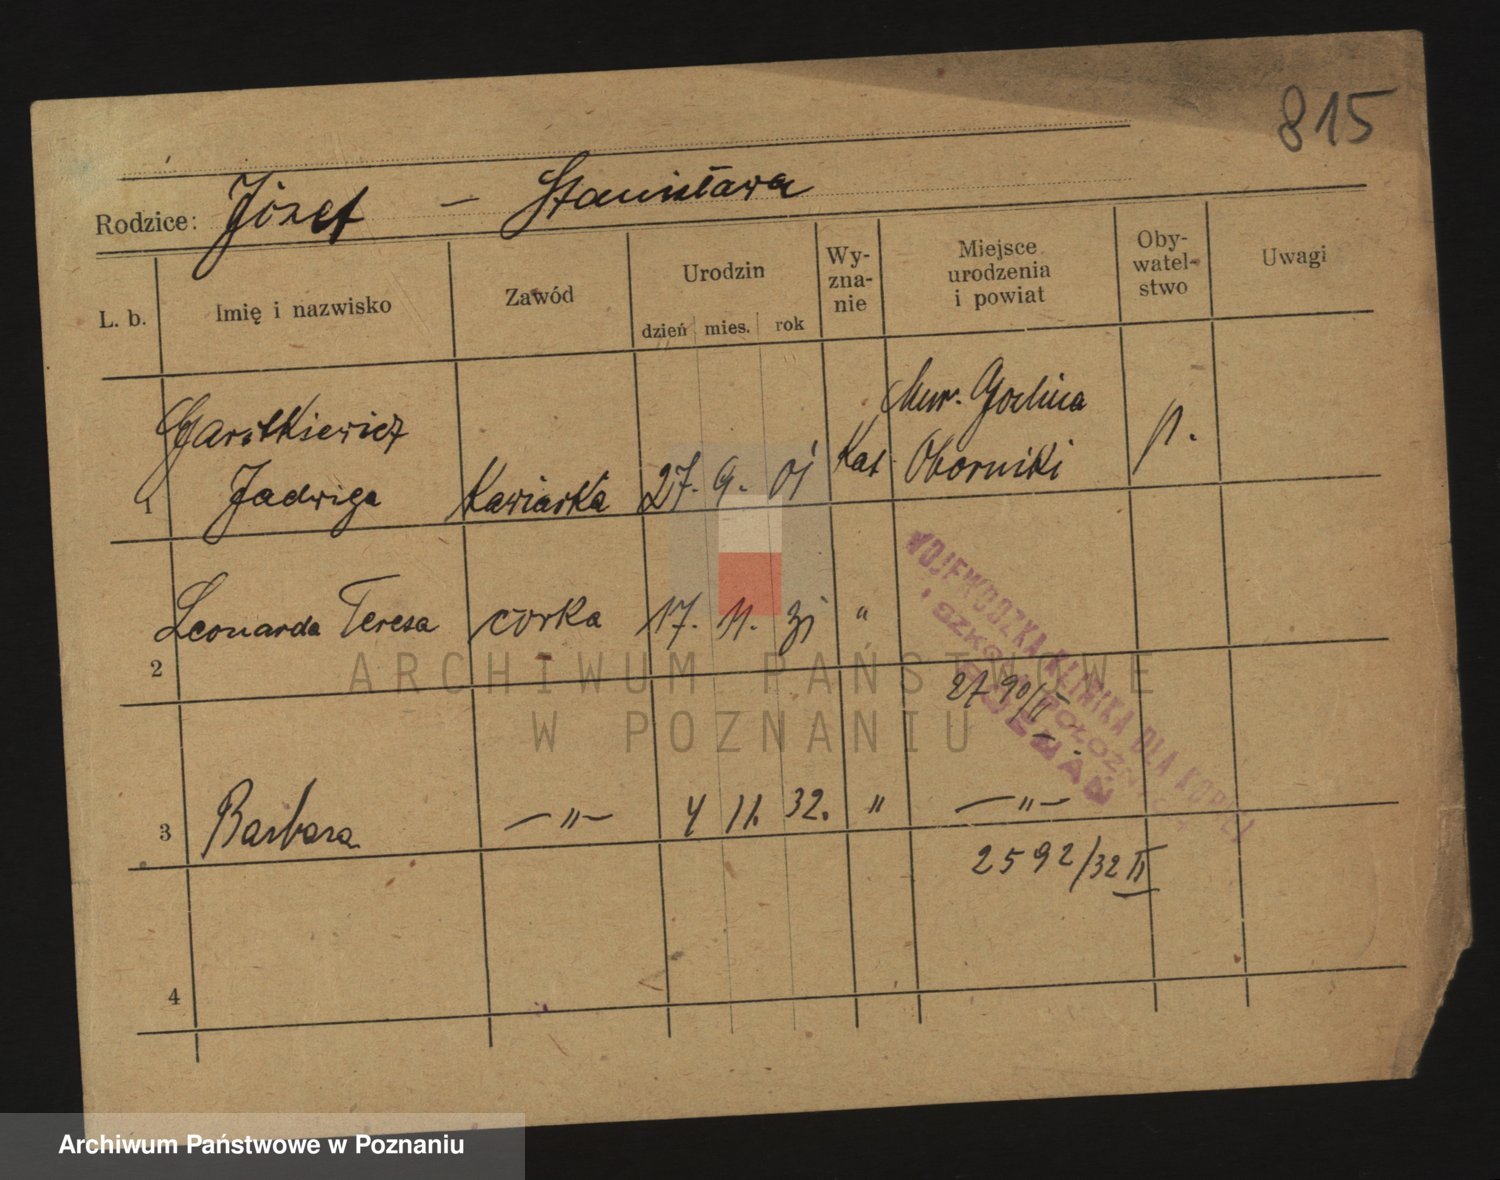 815
Rodzice: Józef — Stanisława
L. b.
Imię i nazwisko
Zawód
Urodzin
dzień mies. rok
Wy-
zna-
nie
Miejsce
urodzenia
i powiat
Oby-
watel-
stwo
Uwagi
Mur. Goślina
1 Jadwiga Kawiarka 27. 9. 01 Kat Oborniki p.
2 Leonarda Teresa córka 17. 11. 31 "
WOJEWÓDZKA KLINIKA DLA KOBIET
I SZKOŁA POŁOŻNYCH
POZNAŃ
2790/II
3 Barbara —"— 4 11. 32. " —"—
2592/32 II
4
ARCHIWUM PAŃSTWOWE
W POZNANIU
Archiwum Państwowe w Poznaniu